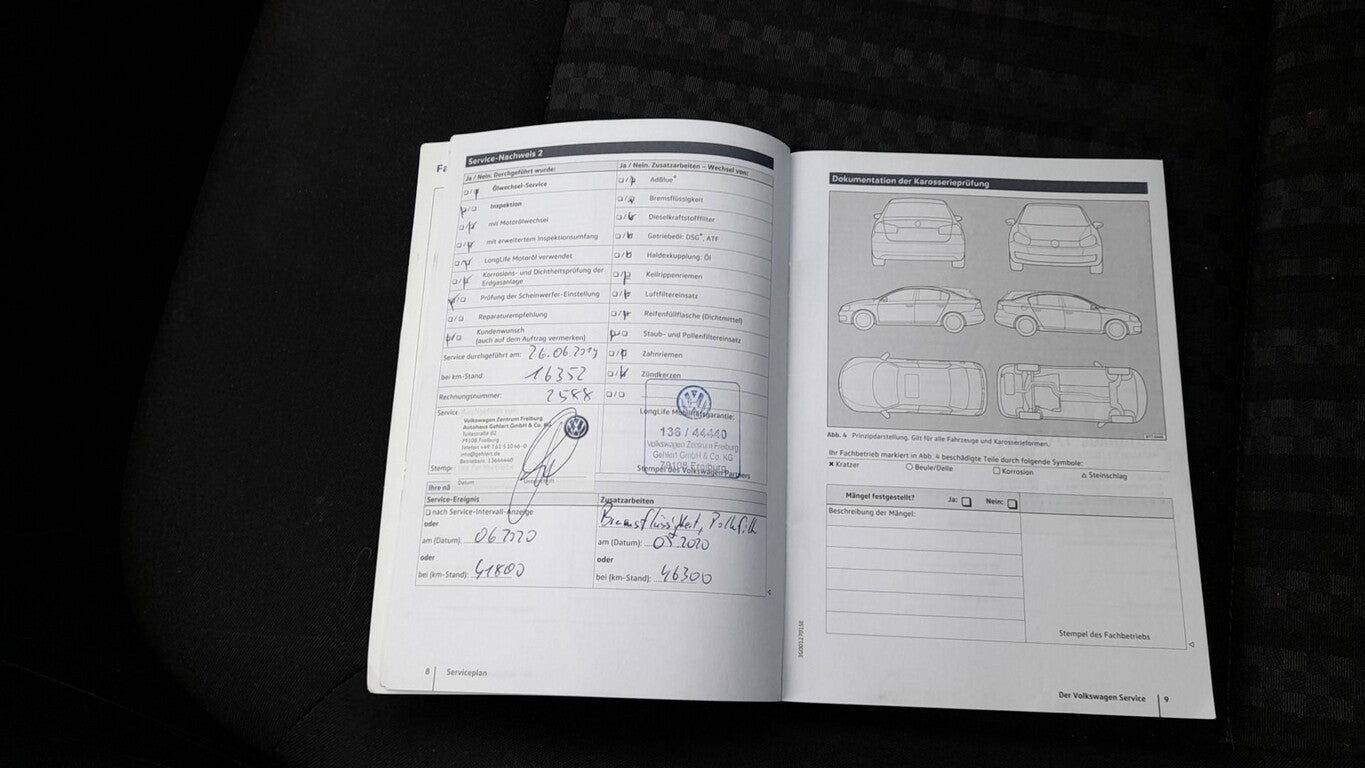 Service-Nachweis 2
Ja / Nein. Durchgeführt wurde:
Ölwechsel-Service
Inspektion
mit Motorölwechsel
mit erweitertem Inspektionsumfang
LongLife Motoröl verwendet
Korrosions- und Dichtheitsprüfung der
Erdgasanlage
Prüfung der Scheinwerfer-Einstellung
Reparaturempfehlung
Kundenwunsch
(auch auf dem Auftrag vermerken)
Service durchgeführt am: 26.06.2019
bei km-Stand: 16352
Rechnungsnummer: 2588
Service
Volkswagen Zentrum Freiburg
Autohaus Gehlert GmbH & Co. KG
Tullastraße 82
79108 Freiburg
info@gehlert.de
Stempe
Datum
Ja / Nein. Zusatzarbeiten – Wechsel von:
AdBlue®
Bremsflüssigkeit
Dieselkraftstofffilter
Getriebeöl: DSG®, ATF
Haldexkupplung: Öl
Keilrippenriemen
Luftfiltereinsatz
Reifenfüllflasche (Dichtmittel)
Staub- und Pollenfiltereinsatz
Zahnriemen
Zündkerzen
LongLife Mobilitätsgarantie:
136 / 44440
Volkswagen Zentrum Freiburg
Gehlert GmbH & Co. KG
79108 Freiburg
Stempel des Volkswagen Partners
Ihre nä
Service-Ereignis
nach Service-Intervall-Anzeige
oder
am (Datum): 06 2020
oder
bei (km-Stand): 41800
Zusatzarbeiten
Bremsflüssigkeit,
am (Datum): 05 2020
oder
bei (km-Stand): 46300
8 Serviceplan
Dokumentation der Karosserieprüfung
Abb. 4 Prinzipdarstellung. Gilt für alle Fahrzeuge und Karosserieformen.
Ihr Fachbetrieb markiert in Abb. 4 beschädigte Teile durch folgende Symbole:
Kratzer Beule/Delle Korrosion Steinschlag
Mängel festgestellt? Ja: Nein:
Beschreibung der Mängel:
Stempel des Fachbetriebs
3G0012701SE
Der Volkswagen Service 9